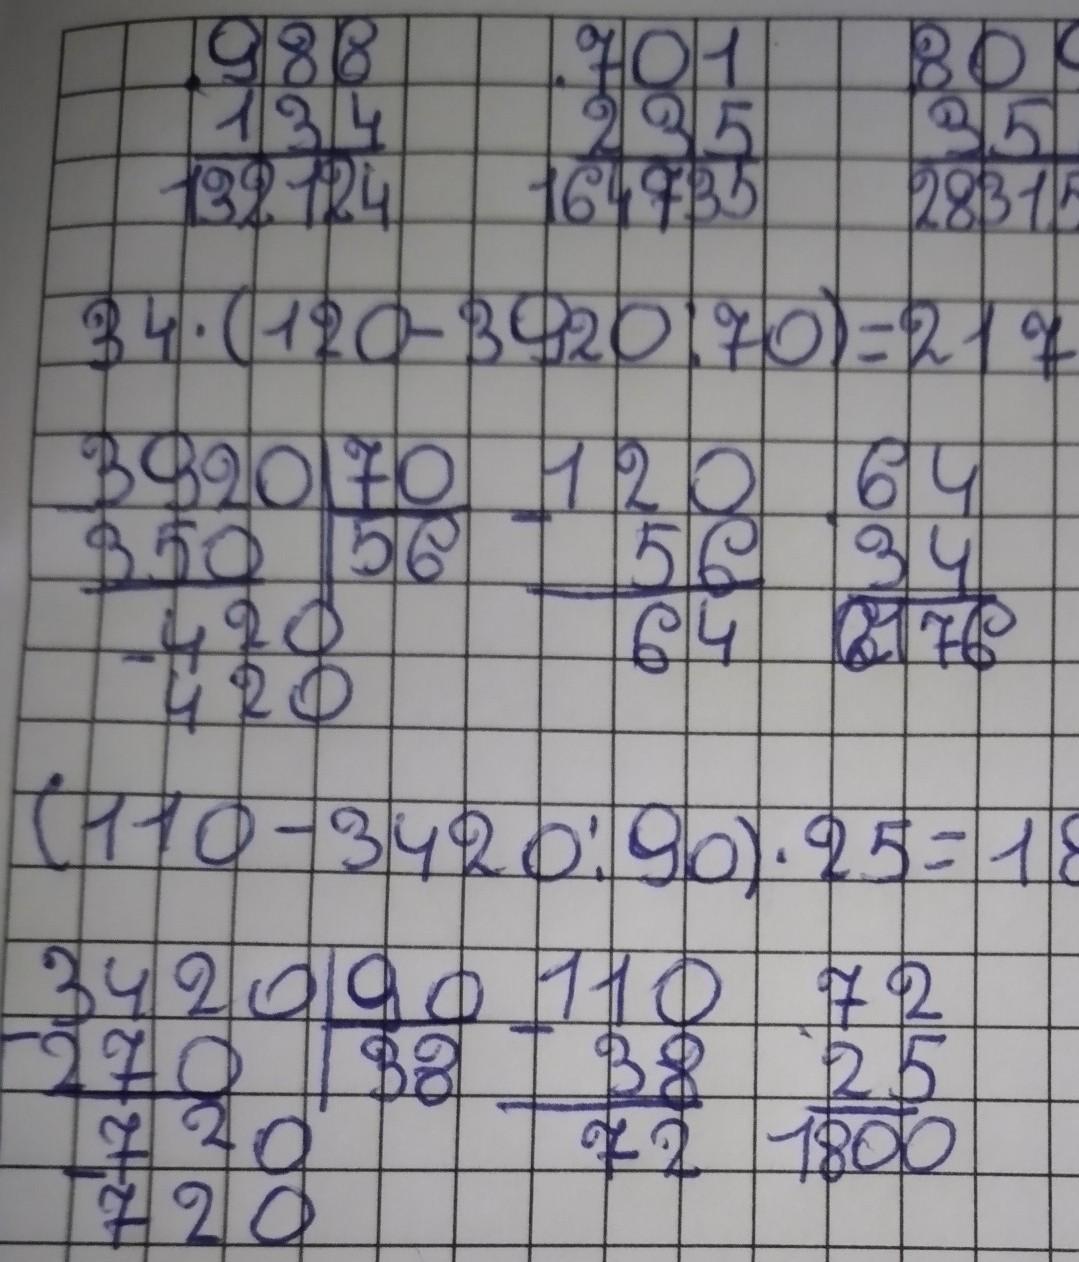 988 701 80
134 235 35
132124 164735 28315
34·(120-3920:70)=217
3920 70 -120 64
-350 56 56 34
-420 64 2176
420
(110-3420:90)·25=18
3420 90 -110 72
-270 38 38 25
-720 72 1800
720